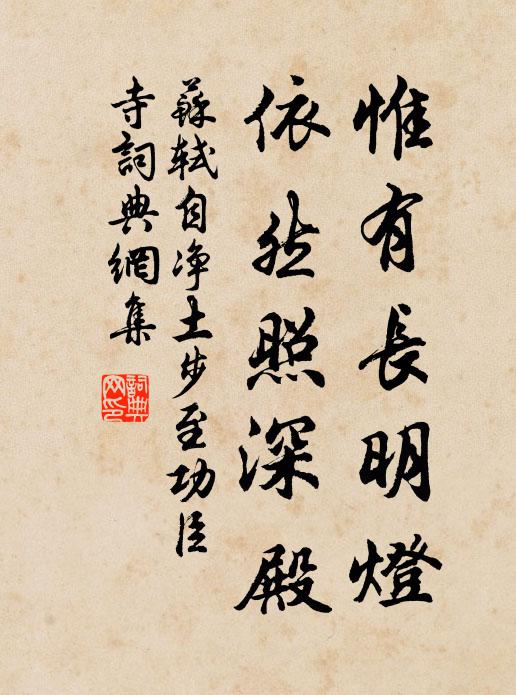 惟有長明燈
依然照深殿
蘇軾自净土步至功臣
寺詞典網集
詞典网印